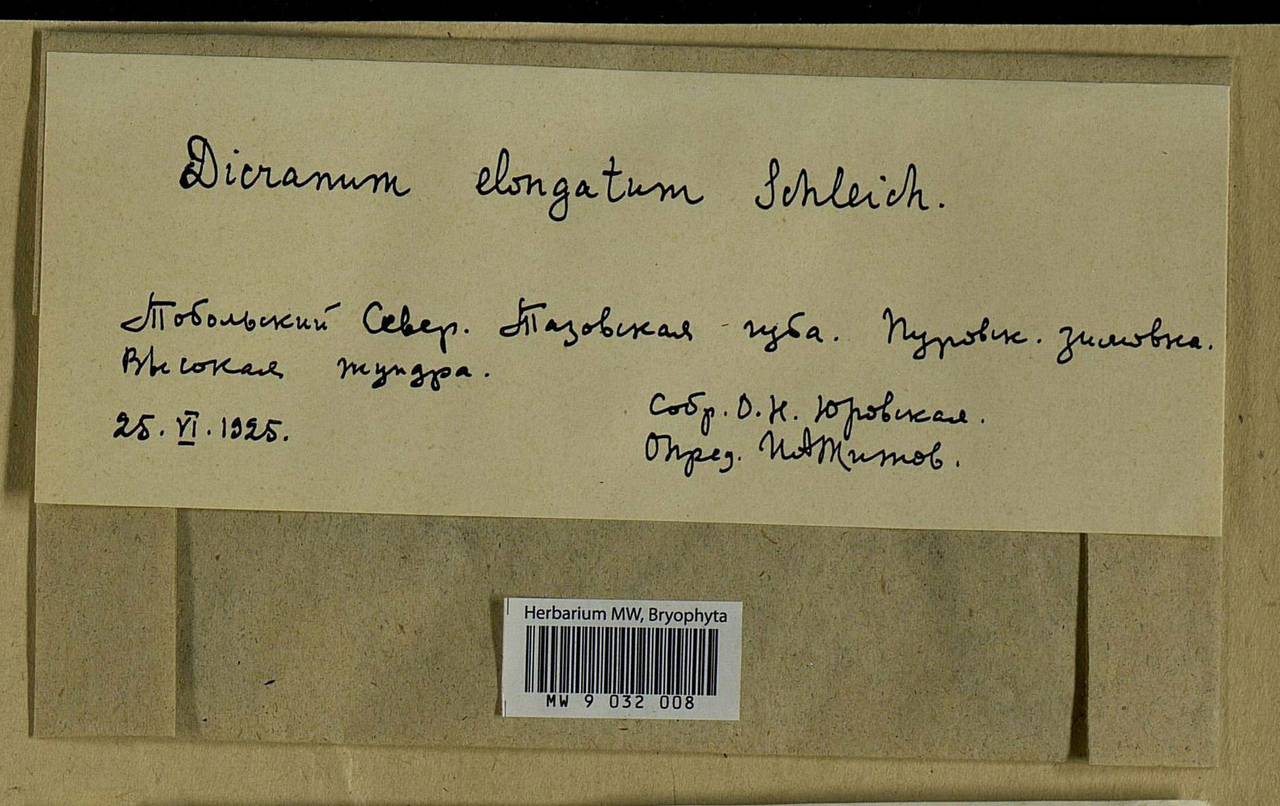 Dicranum elongatum Schleich.
Тобольский Север. Тазовская губа. Пуровск. зимовка.
Высокая тундра.
25.VI.1925.
Собр. О.Н. Юровская.
Опред. ИАЖитов.
Herbarium MW, Bryophyta
MW 9 032 008